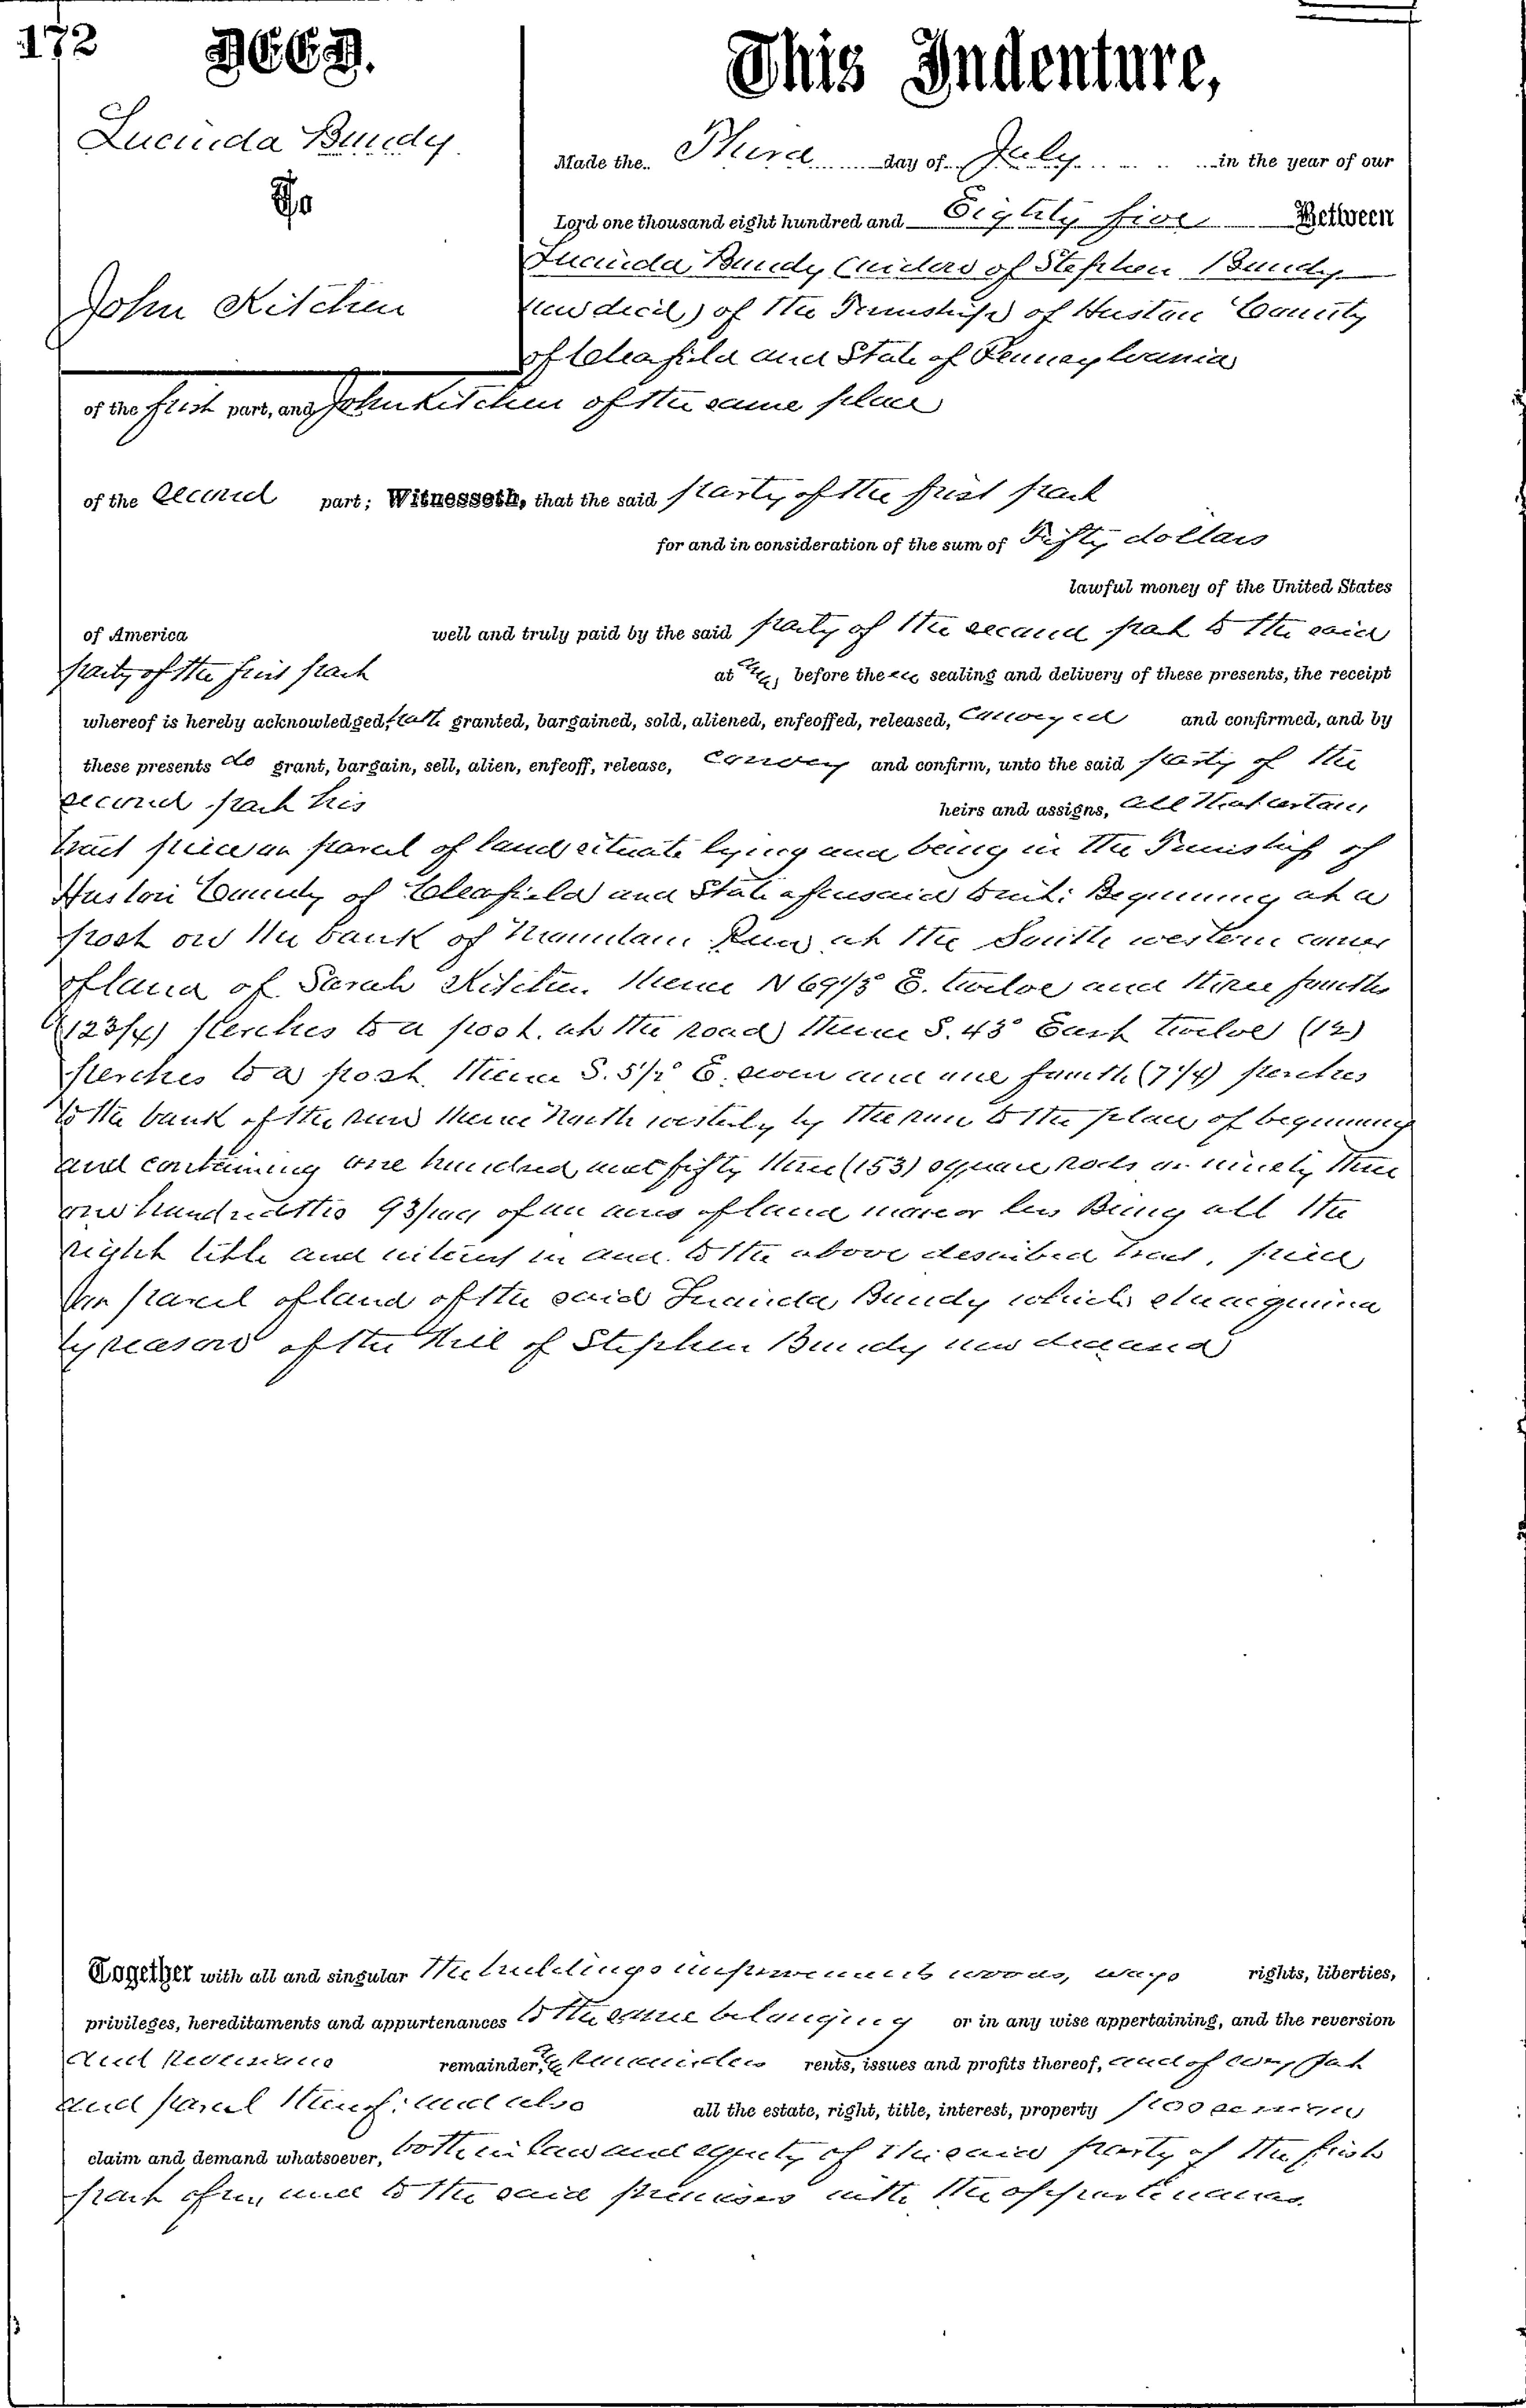 172
Deed.
This Indenture,
Lucinda Bundy
To
John Kitchen
Made the Third day of July in the year of our
Lord one thousand eight hundred and Eighty five Between
Lucinda Bundy (widow of Stephen Bundy
now decd,) of the Township of Huston County
of Clearfield and State of Pennsylvania
of the first part, and John Kitchen of the same place
of the Second part; Witnesseth, that the said party of the first part
for and in consideration of the sum of Fifty dollars
lawful money of the United States
of America well and truly paid by the said party of the second part to the said
party of the first part at before the sealing and delivery of these presents, the receipt
whereof is hereby acknowledged, hath granted, bargained, sold, aliened, enfeoffed, released, Conveyed and confirmed, and by
these presents do grant, bargain, sell, alien, enfeoff, release, Convey and confirm, unto the said party of the
second part his heirs and assigns, All that certain
tract piece or parcel of land situate lying and being in the Township of
Huston County of Clearfield and State aforesaid to wit: Beginning at a
post on the bank of Mountain Run at the South western corner
of land of Sarah Kitchen. Thence N 69 1/3° E. twelve and three fourths
(12 3/4) perches to a post. at the road Thence S. 43° East twelve (12)
perches to a post. Thence S. 5 1/2° E. seven and one fourth (7 1/4) perches
to the bank of the run Thence North westerly by the run to the place of beginning
and containing one hundred and fifty three (153) square rods or ninety three
one hundredths 93/100 of an acre of land more or less Being all the
right title and interest in and to the above described tract, piece
or parcel of land of the said Lucinda Bundy which she acquired
by reason of the Will of Stephen Bundy now deceased
Together with all and singular the buildings improvements woods, ways rights, liberties,
privileges, hereditaments and appurtenances to the same belonging or in any wise appertaining, and the reversion
and reversions remainder, & remainders rents, issues and profits thereof, and of every part
and parcel thereof: and also all the estate, right, title, interest, property possession
claim and demand whatsoever, both in law and equity of the said party of the first
part of in, and to the said premises with the appurtenances.